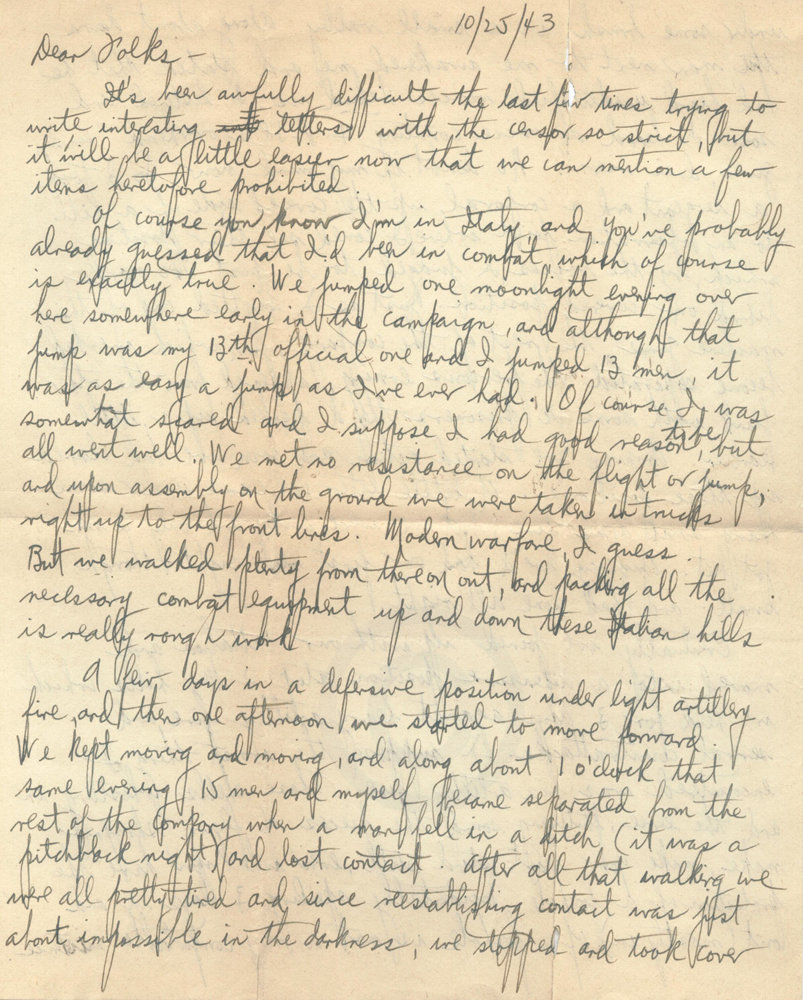 10/25/43
Dear Folks -
It's been awfully difficult the last few times trying to
write interesting letters with the censor so strict, but
it will be a little easier now that we can mention a few
items heretofore prohibited.
Of course you know I'm in Italy and you've probably
already guessed that I'd been in combat, which of course
is exactly true. We jumped one moonlight evening over
here somewhere early in the campaign, and although that
jump was my 13th official one and I jumped 13 men, it
was as easy a jump as I've ever had. Of course I was
somewhat scared and I suppose I had good reason to be, but
all went well. We met no resistance on the flight or jump,
and upon assembly on the ground we were taken in trucks
right up to the front lines. Modern warfare, I guess.
But we walked plenty from there on out, and packing all the
necessary combat equipment up and down these Italian hills
is really rough work.
A few days in a defensive position under light artillery
fire, and then one afternoon we started to move forward.
We kept moving and moving, and along about 1 o'clock that
same evening 15 men and myself became separated from the
rest of the company when a man fell in a ditch (it was a
pitchblack night) and lost contact. After all that walking we
were all pretty tired and since reestablishing contact was just
about impossible in the darkness, we stopped and took cover